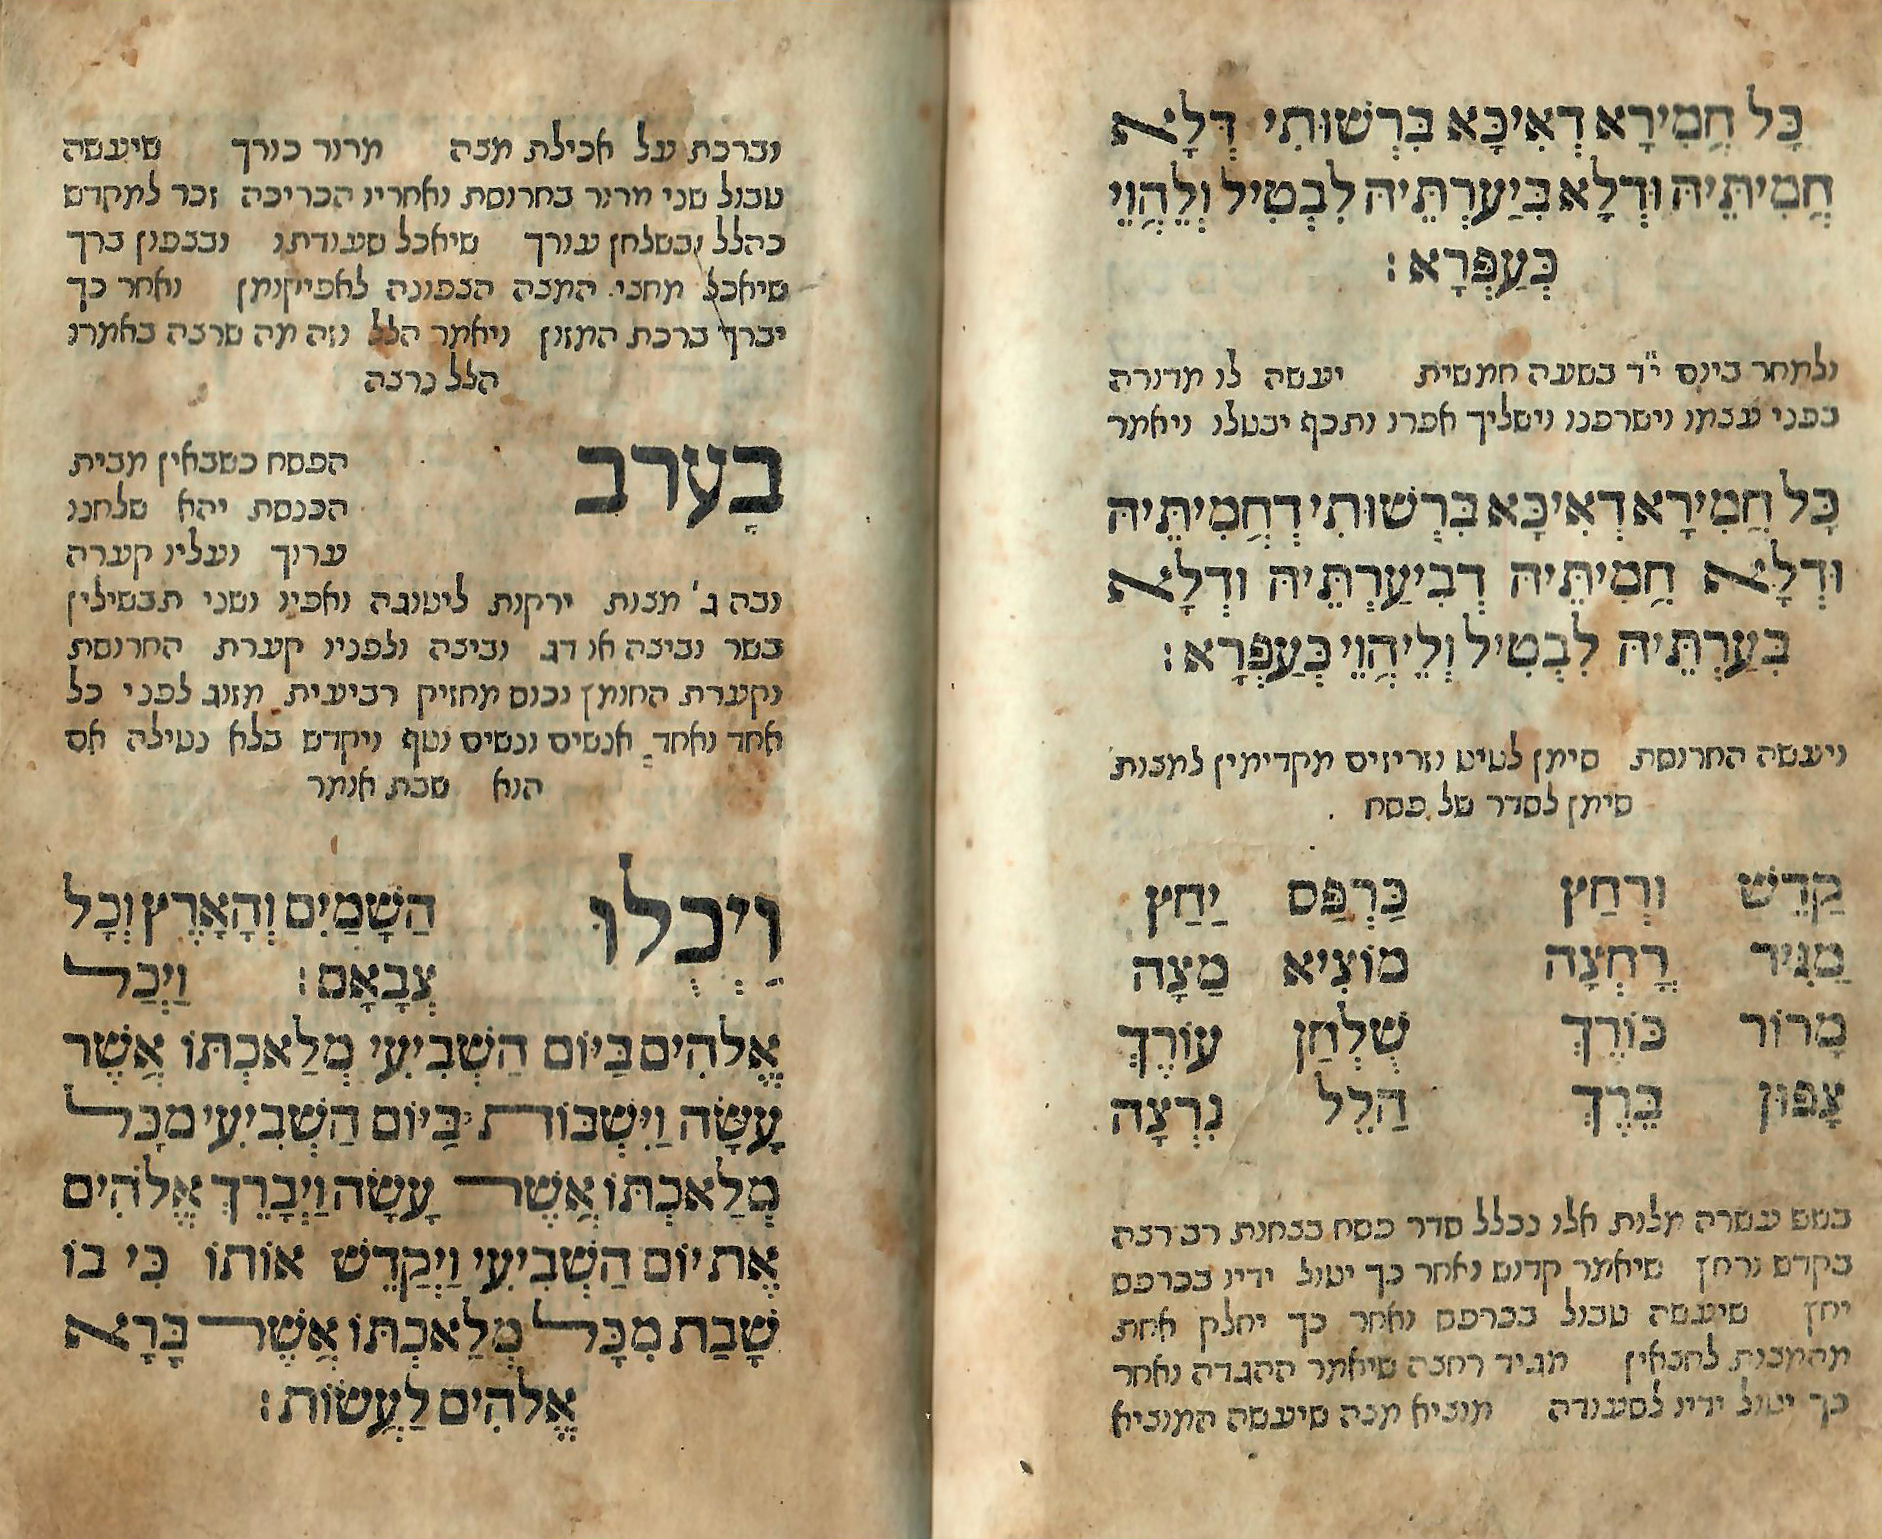 כָּל חֲמִירָא דְאִיכָּא בִּרְשׁוּתִי דְּלָא
חֲמִיתֵּיהּ וּדְלָא בִּיַעַרְתֵּיהּ לִבְטִיל וְלֶהֱוֵי
כְּעַפְרָא:
ולמחר ביום י״ד בשעה חמשית יעשה לו מדורה
בפני עצמו וישרפנו וישליך אפרו ותכף יבטלו ויאמר
כָּל חֲמִירָא דְאִיכָּא בִּרְשׁוּתִי דְּחֲמִיתֵּיהּ
וּדְלָא חֲמִיתֵּיהּ דְבִיעַרְתֵּיהּ וּדְלָא
בִּעַרְתֵּיהּ לִבְטִיל וְלֶיהֱוֵי כְּעַפְרָא:
ויעשה החרוסת סימן לטיט וזריזים מקדימין למצות
סימן לסדר של פסח
קַדֵּשׁ וּרְחַץ כַּרְפַּס יַחַץ
מַגִּיד רָחְצָה מוֹצִיא מַצָּה
מָרוֹר כּוֹרֵךְ שֻׁלְחַן עוֹרֵךְ
צָפוּן בָּרֵךְ הַלֵּל נִרְצָה
בשש עשרה מלות אלו נכלל סדר פסח בצחות רב רבה
בקדש ורחץ שיאמר קדוש ואחר כך יטול ידיו בכרפס
יחץ שיעשה טבול בכרפס ואחר כך יחלק אחת
מהמצות לחצאין מגיד רחצה שיאמר ההגדה ואחר
כך יטול ידיו לסעודה מוציא מצה שיעשה המוציא
וברכת על אכילת מצה מרור כורך שיעשה
טבול שני מרור בחרוסת ואחריו הכריכה זכר למקדש
כהלל ובשלחן עורך שיאכל סעודתו ובצפון ברך
שיאכל מחצי המצה הצפונה לאפיקומן ואחר כך
יברך ברכת המזון ויאמר הלל וזה מה שרצה באמרו
הלל נרצה
בָּעֶרֶב הפסח כשבאין מבית
הכנסת יהא שלחנו
ערוך ועליו קערה
ובה ג' מצות ירקות ליטוגה ואפיו ושני תבשילין
בשר וביצה או דג וביצה ולפניו קערת החרוסת
וקערת החומץ וכוס מחזיק רביעית מזוג לפני כל
אחד ואחד אנשים ונשים וטף ויקדש בלא נטילה אם
הוא שבת אומר
וַיְכֻלּוּ הַשָּׁמַיִם וְהָאָרֶץ וְכָל
צְבָאָם: וַיְכַל
אֱלֹהִים בַּיּוֹם הַשְּׁבִיעִי מְלַאכְתּוֹ אֲשֶׁר
עָשָׂה וַיִּשְׁבּוֹת בַּיּוֹם הַשְּׁבִיעִי מִכָּל
מְלַאכְתּוֹ אֲשֶׁר עָשָׂה וַיְבָרֵךְ אֱלֹהִים
אֶת יוֹם הַשְּׁבִיעִי וַיְקַדֵּשׁ אוֹתוֹ כִּי בוֹ
שָׁבַת מִכָּל מְלַאכְתּוֹ אֲשֶׁר בָּרָא
אֱלֹהִים לַעֲשׂוֹת: